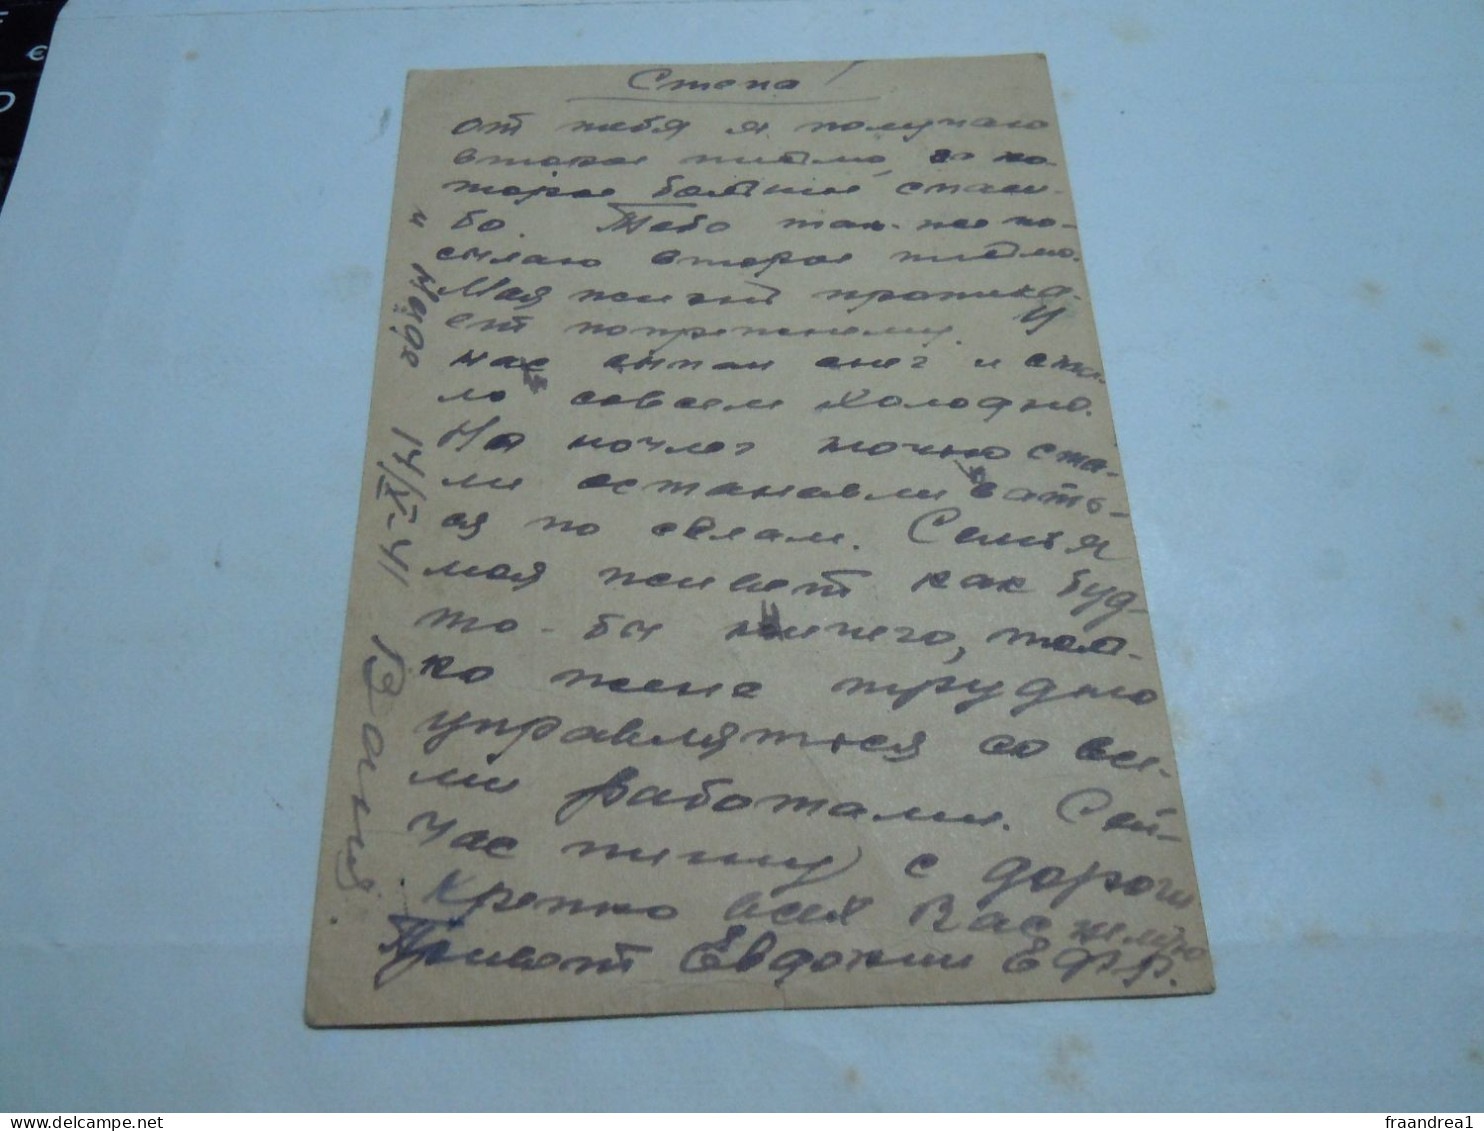 Степа!
От тебя я получаю
второе письмо, за ко-
торое большое спаси-
бо. Тебе так-же по-
сылаю второе письмо.
Моя жизнь протека-
ет попрежнему. У
нас выпал снег и ста-
ло совсем холодно.
На ночлег точно ста-
ли останавливать-
ся по селам. Семья
моя живет как буд-
то-бы ничего, толь-
ко жене трудно
управляться со все-
ми работами. Сей-
час пишу с дороги
Крепко всех Вас целую
Привет Евдокии Ефр.
и Наде 14/X-41 Ваня.
fraandrea1